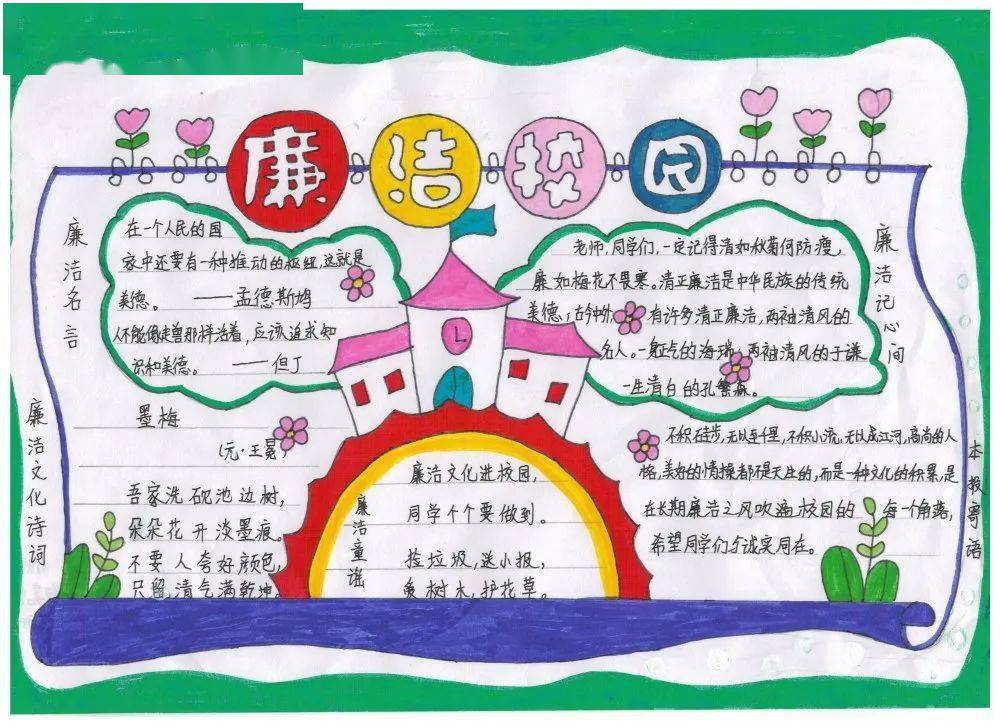 廉洁校园
廉洁名言
在一个人民的国
家中还要有一种推动的枢纽,这就是
美德。 ——孟德斯鸠
人不能像走兽那样活着,应该追求知
识和美德。 ——但丁
廉洁记心间
老师,同学们,一定记得清如秋菊何防瘦,
廉如梅花不畏寒。清正廉洁是中华民族的传统
美德,古今中外 有许多清正廉洁,两袖清风的
名人。一身正气的海瑞,两袖清风的于谦
一生清白的孔繁森。
廉洁文化诗词
墨梅
(元·王冕)
吾家洗砚池边树,
朵朵花开淡墨痕。
不要人夸好颜色,
只留清气满乾坤。
廉洁童谣
廉洁文化进校园,
同学个个要做到。
捡垃圾,送小报,
爱树木,护花草。
本报寄语
不积硅步,无以至千里,不积小流,无以成江河,高尚的人
格,美好的情操都不是天生的,而是一种文化的积累,是
在长期廉洁之风吹遍校园的 每一个角落,
希望同学们与诚实同在。